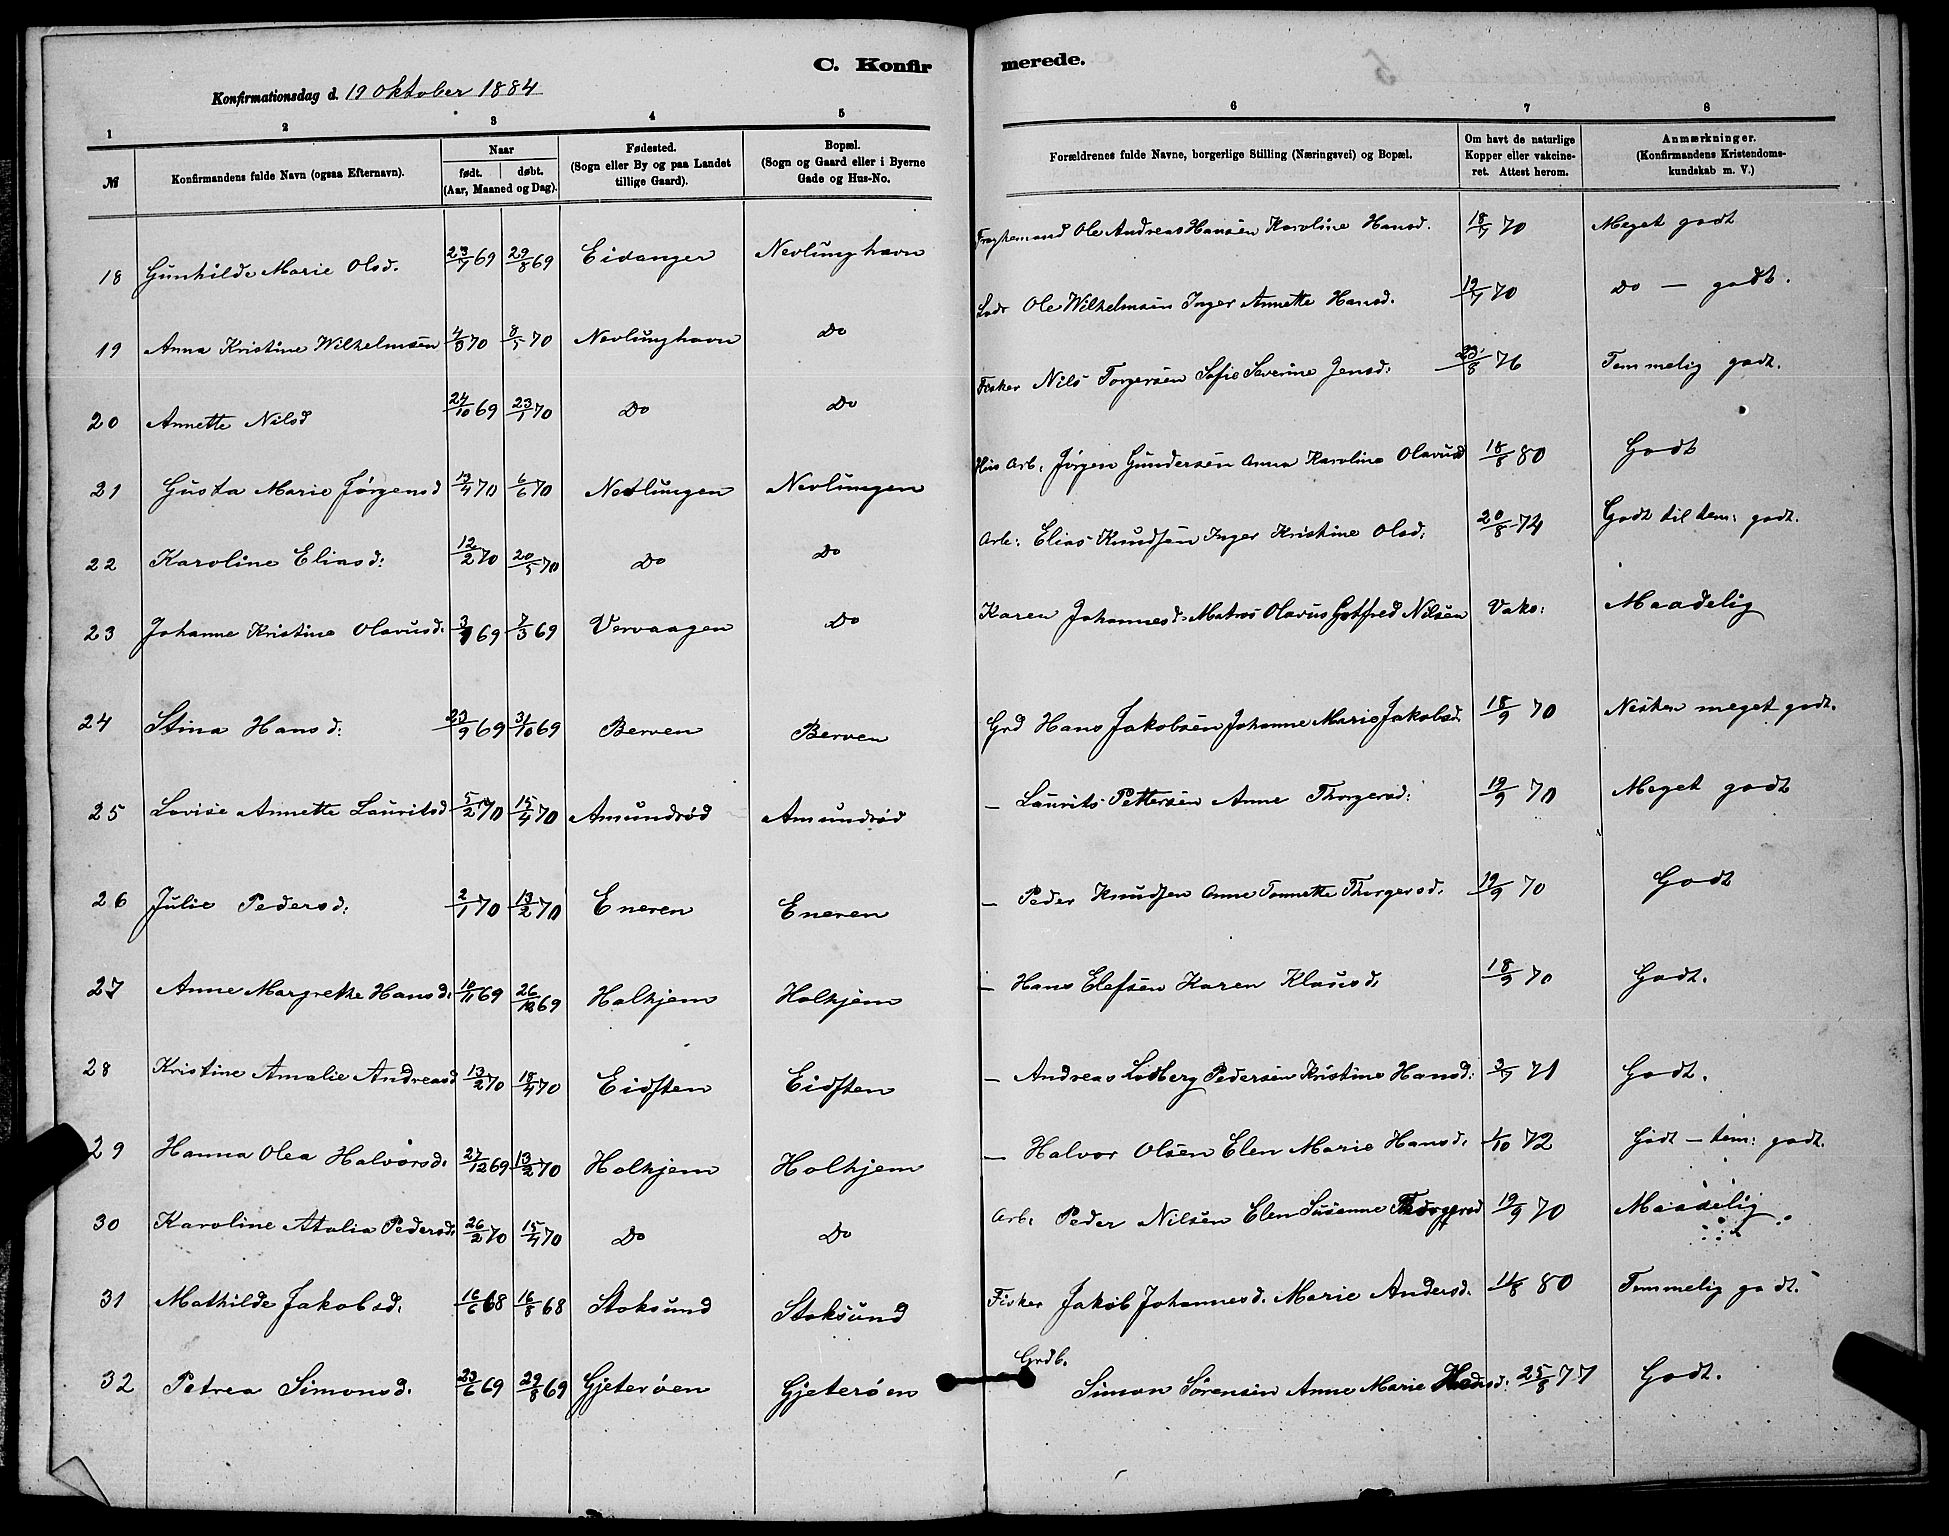 C. Konfirmerede.
Konfirmationsdag d. 19 Oktober 1884
1 2 3 4 5 6 7 8
№ Konfirmandens fulde Navn (ogsaa Efternavn). Naar født. døbt. (Aar, Maaned og Dag). Fødested. (Sogn eller By og paa Landet tillige Gaard). Bopæl. (Sogn og Gaard eller i Byerne Gade og Hus-No. Forældrenes fulde Navne, borgerlige Stilling (Næringsvei) og Bopæl. Om havt de naturlige Kopper eller vakcineret. Attest herom. Anmærkninger. (Konfirmandens Kristendomskundskab m. V.)
18 Gunhilde Marie Olsd. 23/7 69 29/8 69 Eidanger Nevlunghavn Ole Andreas Hansen Karoline Hansd. 18/7 70 Meget godt
19 Anna Kristine Wilhelmsen 4/3 70 8/5 70 Nevlunghavn Do Lods Ole Wilhelmsen Inger Annette Hansd. 19/7 70 Do — godt.
20 Annette Nilsd 24/10 69 23/1 70 Do Do Fisker Nils Torgersen Sofie Severine Jensd: 23/8 76 Temmelig godt.
21 Gusta Marie Jørgensd 13/4 70 6/6 70 Nevlungen Nevlungen Hus Arb. Jørgen Gundersen Anna Karoline Olavusd 18/8 80 Godt
22 Karoline Eliasd: 12/2 70 20/5 70 Do Do Arb: Elias Knudsen Inger Kristine Olsd: 20/8 74 Godt til tem: godt.
23 Johanne Kristine Olavusd. 3/1 69 7/3 69 Vervaagen Do Karen Johannesd. Matros Olavus Gotfred Nilsen Vaks: Maadelig
24 Stina Hansd: 23/9 69 31/10 69 Berven Berven Grd Hans Jakobsen Johanne Marie Jakobsd 18/9 70 Næsten meget godt.
25 Lovise Annette Lauritsd 5/2 70 15/4 70 Amundrød Amundrød — Laurits Pettersen Anne Thorgersd: 19/9 70 Meget godt
26 Julie Pedersd: 2/1 70 13/2 70 Eneren Eneren — Peder Knudsen Anne Tonnette Thorgersd. 19/9 70 Godt
27 Anne Margrethe Hansd. 10/11 69 26/12 69 Holhjem Holhjem — Hans Elefsen Karen Klausd. 18/9 70 Godt.
28 Kristine Amalie Andreasd 13/2 70 18/4 70 Eidsten Eidsten — Andreas Lodberg Pedersen Kristine Hansd: 3/7 71 Godt.
29 Hanna Olea Halvorsd. 27/12 69 13/2 70 Holhjem Holhjem — Halvor Olsen Elen Marie Hansd. 1/10 72 Godt — tem: godt.
30 Karoline Atalia Pedersd. 26/2 70 15/4 70 Do Do Arb. Peder Nilsen Elen Susanne Thorgersd 19/9 70 Maadelig.
31 Mathilde Jakobsd. 16/6 68 16/8 68 Stoksund Stoksund Fisker Jakob Johannesd. Marie Andersd. 11/8 80 Temmelig godt.
32 Petrea Simonsd. 23/6 69 29/8 69 Gjeterøen Gjeterøen Grdb. Simon Sørensen Anne Marie Hansd: 25/8 77 Godt.